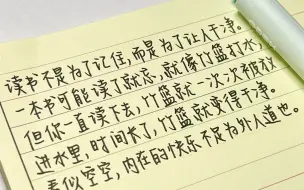 读书不是为了记住,而是为了让人干净。
一本书可能读了就忘,就像竹篮打水,
但你一直读下去,竹篮就一次次被放
进水里,时间长了,竹篮就变得干净。
看似空空,内在的快乐不足为外人道也。